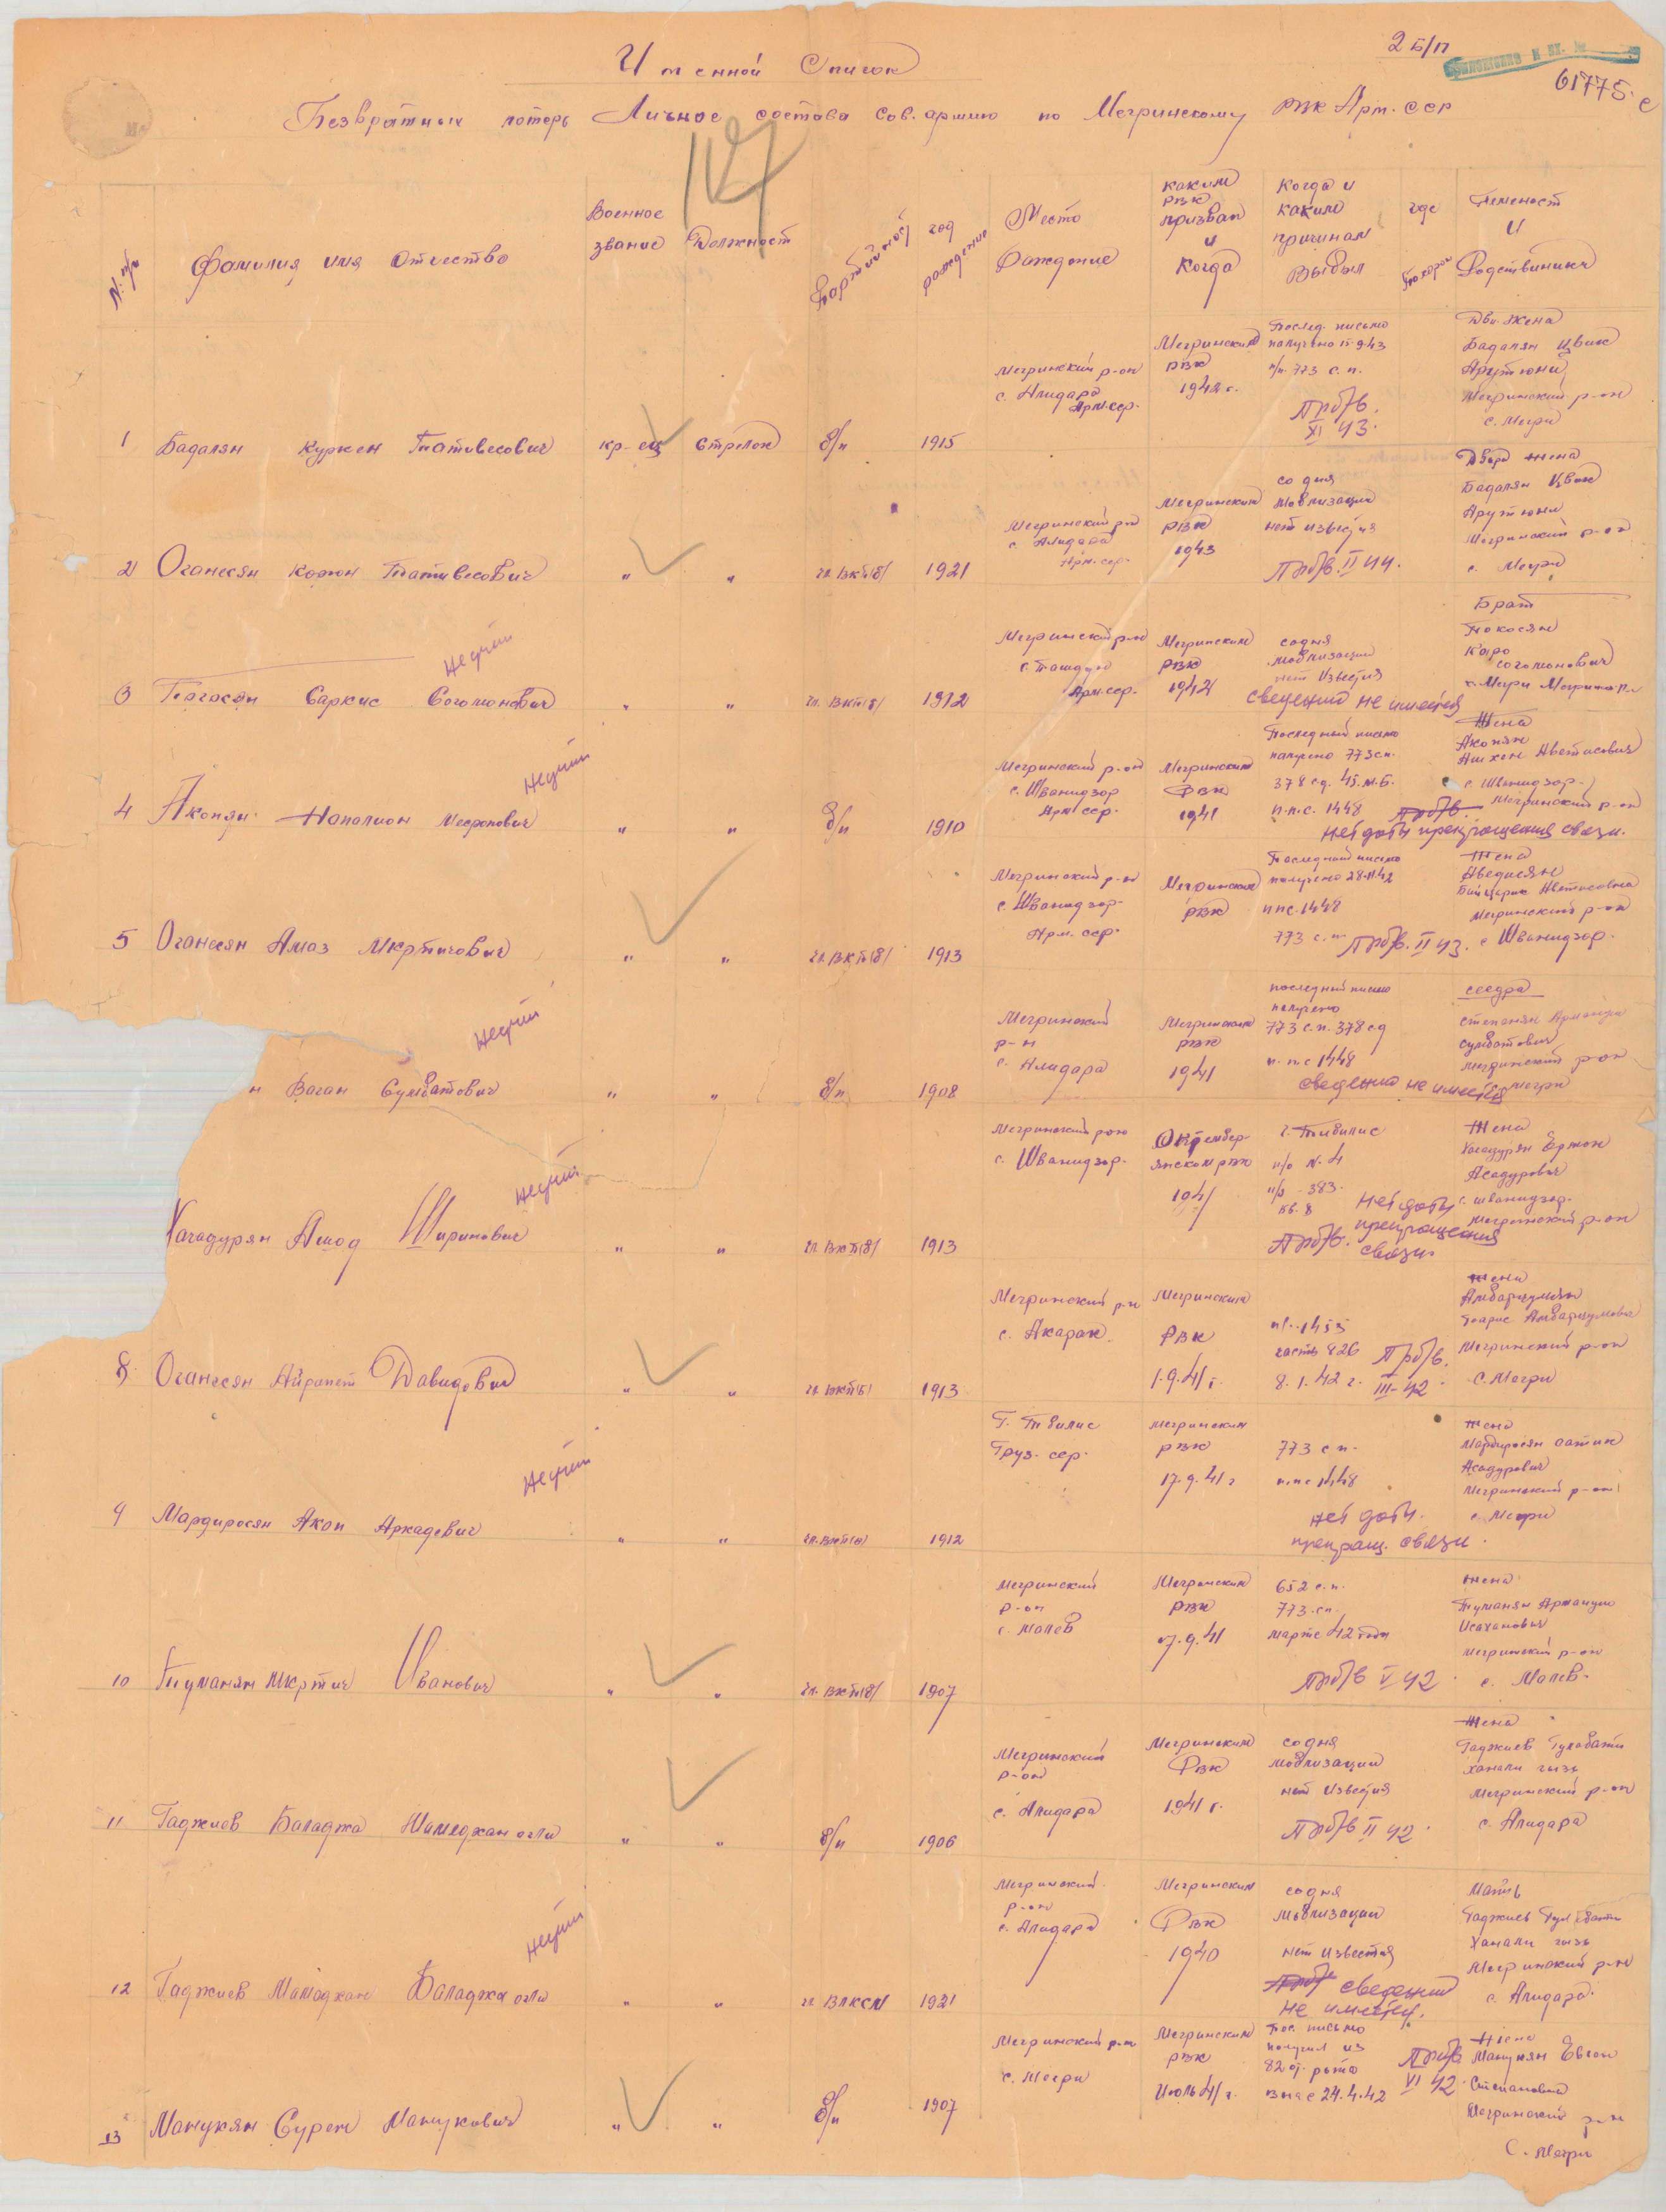 2 Б/П
61775 с
Именной Список
Безвратных потерь Личное состава Сов. армию по Мегринскому РВК Арм. ССР
127
N. п/п
Фамилия имя Отчество
Военное звание
Должност
Партийност
год рождение
Место Рождение
каким РВК призван и когда
Когда и каким причинам Выбыл
где Похорон
Родствиники
1 Бадалян Куркен Татевосович кр-ец Стрелок б/п 1915
Мегринский р-он
с. Алидара
Арм. сер.
Мегринским
РВК
1942 г.
Послед. письмо
получено 15-9-43
п/п. 773 с. п.
Пр б/в.
XI 43.
Жена
Бадалян Цвик
Арутюни
Мегринский р-он
с. Мегри
2 Оганесян Татевосович " " чл. ВКП/б/ 1921
Мегринский р-н
с. Алидара
Арм. сер.
Мегринским
РВК
1943
со дня
мобилизации
нет известия
Пр б/в. II 44.
жена
Бадалян Цвик
Арутюни
Мегринский р-он
с. Мегри
Неучтён
3 Погосян Саркис Согомонович " " чл. ВКП/б/ 1912
Мегринский р-н
Арм. сер.
Мегринским
РВК
1942
со дня
мобилизации
нет известия
сведений не имеется
Брат
Покосян
Каро
Согомонович
с. Мегри
Неучтён
4 Акопян Наполион Месропович " " б/п 1910
Мегринский р-он
с. Шванидзор
Арм. сер.
Мегринским
РВК
1941
Последный письмо
получено 773 с. п.
378 с.д.
п.п.с. 1448
Пр б/в.
нет даты прекращения связи.
Жена
Акопян
Ашхен Аветисович
с. Шванидзор.
Мегринский р-он
5 Оганесян Амаз Мкртичович " " чл. ВКП/б/ 1913
Мегринский р-н
с. Шванидзор
Арм. сер.
Мегринским
РВК
Последный письмо
получено 28-11-42
ппс. 1448
773 с. п.
Пр б/в. II 43.
Жена
Аведисян
Аветисовна
Мегринский р-он
с. Шванидзор.
Неучтён
н Ваган Сумбатович " " б/п 1908
Мегринский
р-н
с. Алидара
Мегринским
РВК
1941
последный письмо
получено
773 с. п. 378 с д
п. п. с 1448
сведений не имеется
сестра
Степанян
Сумбатович
Мегринский р-он
Мегри
Неучтён
Хачадурян Ашод Ширинович " " чл. ВКП/б/ 1913
Мегринский р-он
с. Шванидзор.
Октембер-
янском РВК
1941
г. Тибилис
п/о N. 4
п/я 383.
кв. 8
Пр б/в.
Нет даты
прекращения
связи.
Жена
Хачадурян Ермон
Асадурович
с. шванидзор.
Мегринский р-он
8 Оганесян Айрапет Давидович " " чл. ВКП/б/ 1913
Мегринский р-н
с. Акарак.
Мегринским
РВК
1.9.41 г.
1455
часть 826
8. 1. 42 г.
Пр б/в.
III-42
жена
Амбарцумян
Амбарцумовна
Мегринский р-он
С. Мегри
Неучтён
9 Мардиросян Акоп Аркадевич " " чл. ВКП/б/ 1912
Г. Тбилис
Груз. сер.
Мегринским
РВК
17. 9. 41 г
773 с п.
п. п с 1448
нет даты.
прекращ. связи
жена
Мардиросян Сатик
Асадурович
Мегринский р-он
с. Мегри
10 Туманян Мкртич Иванович " " чл. ВКП/б/ 1907
Мегринский
р-он
с. Малев
Мегринским
РВК
17. 9. 41
652 с. п.
773. сп.
марте 42 года
Пр б/в V 42
жена
Туманян
Исаханович
Мегринский р-он
с. Малев.
11 Гаджиев Баладжа Мамеджан огли " " б/п 1906
Мегринский
р-он
с. Алидара
Мегринским
РВК
1941 г.
со дня
мобилизации
нет известия
Пр б/в II 42
Жена
Гаджиев
Ханали гызы
Мегринский р-он
с. Алидара
Неучтён
12 Гаджиев Мамаджан Баладжа огли " " чл ВЛКСМ 1921
Мегринский
р-он
с. Алидара
Мегринским
РВК
1940
со дня
мобилизации
нет известия
Пр б/в сведений
не имеется.
Мать
Гаджиев
Ханали гызы
Мегринский р-н
с. Алидара.
13 Манукян Сурен Манукович " " б/п 1907
Мегринский р-н
с. Мегри
Мегринским
РВК
Июль 41 г.
Пос. письмо
получил из
24. 4. 42
Пр б/в
VI 42
Жена
Манукян Евген
Степановна
Мегринский р-н
С. Мегри